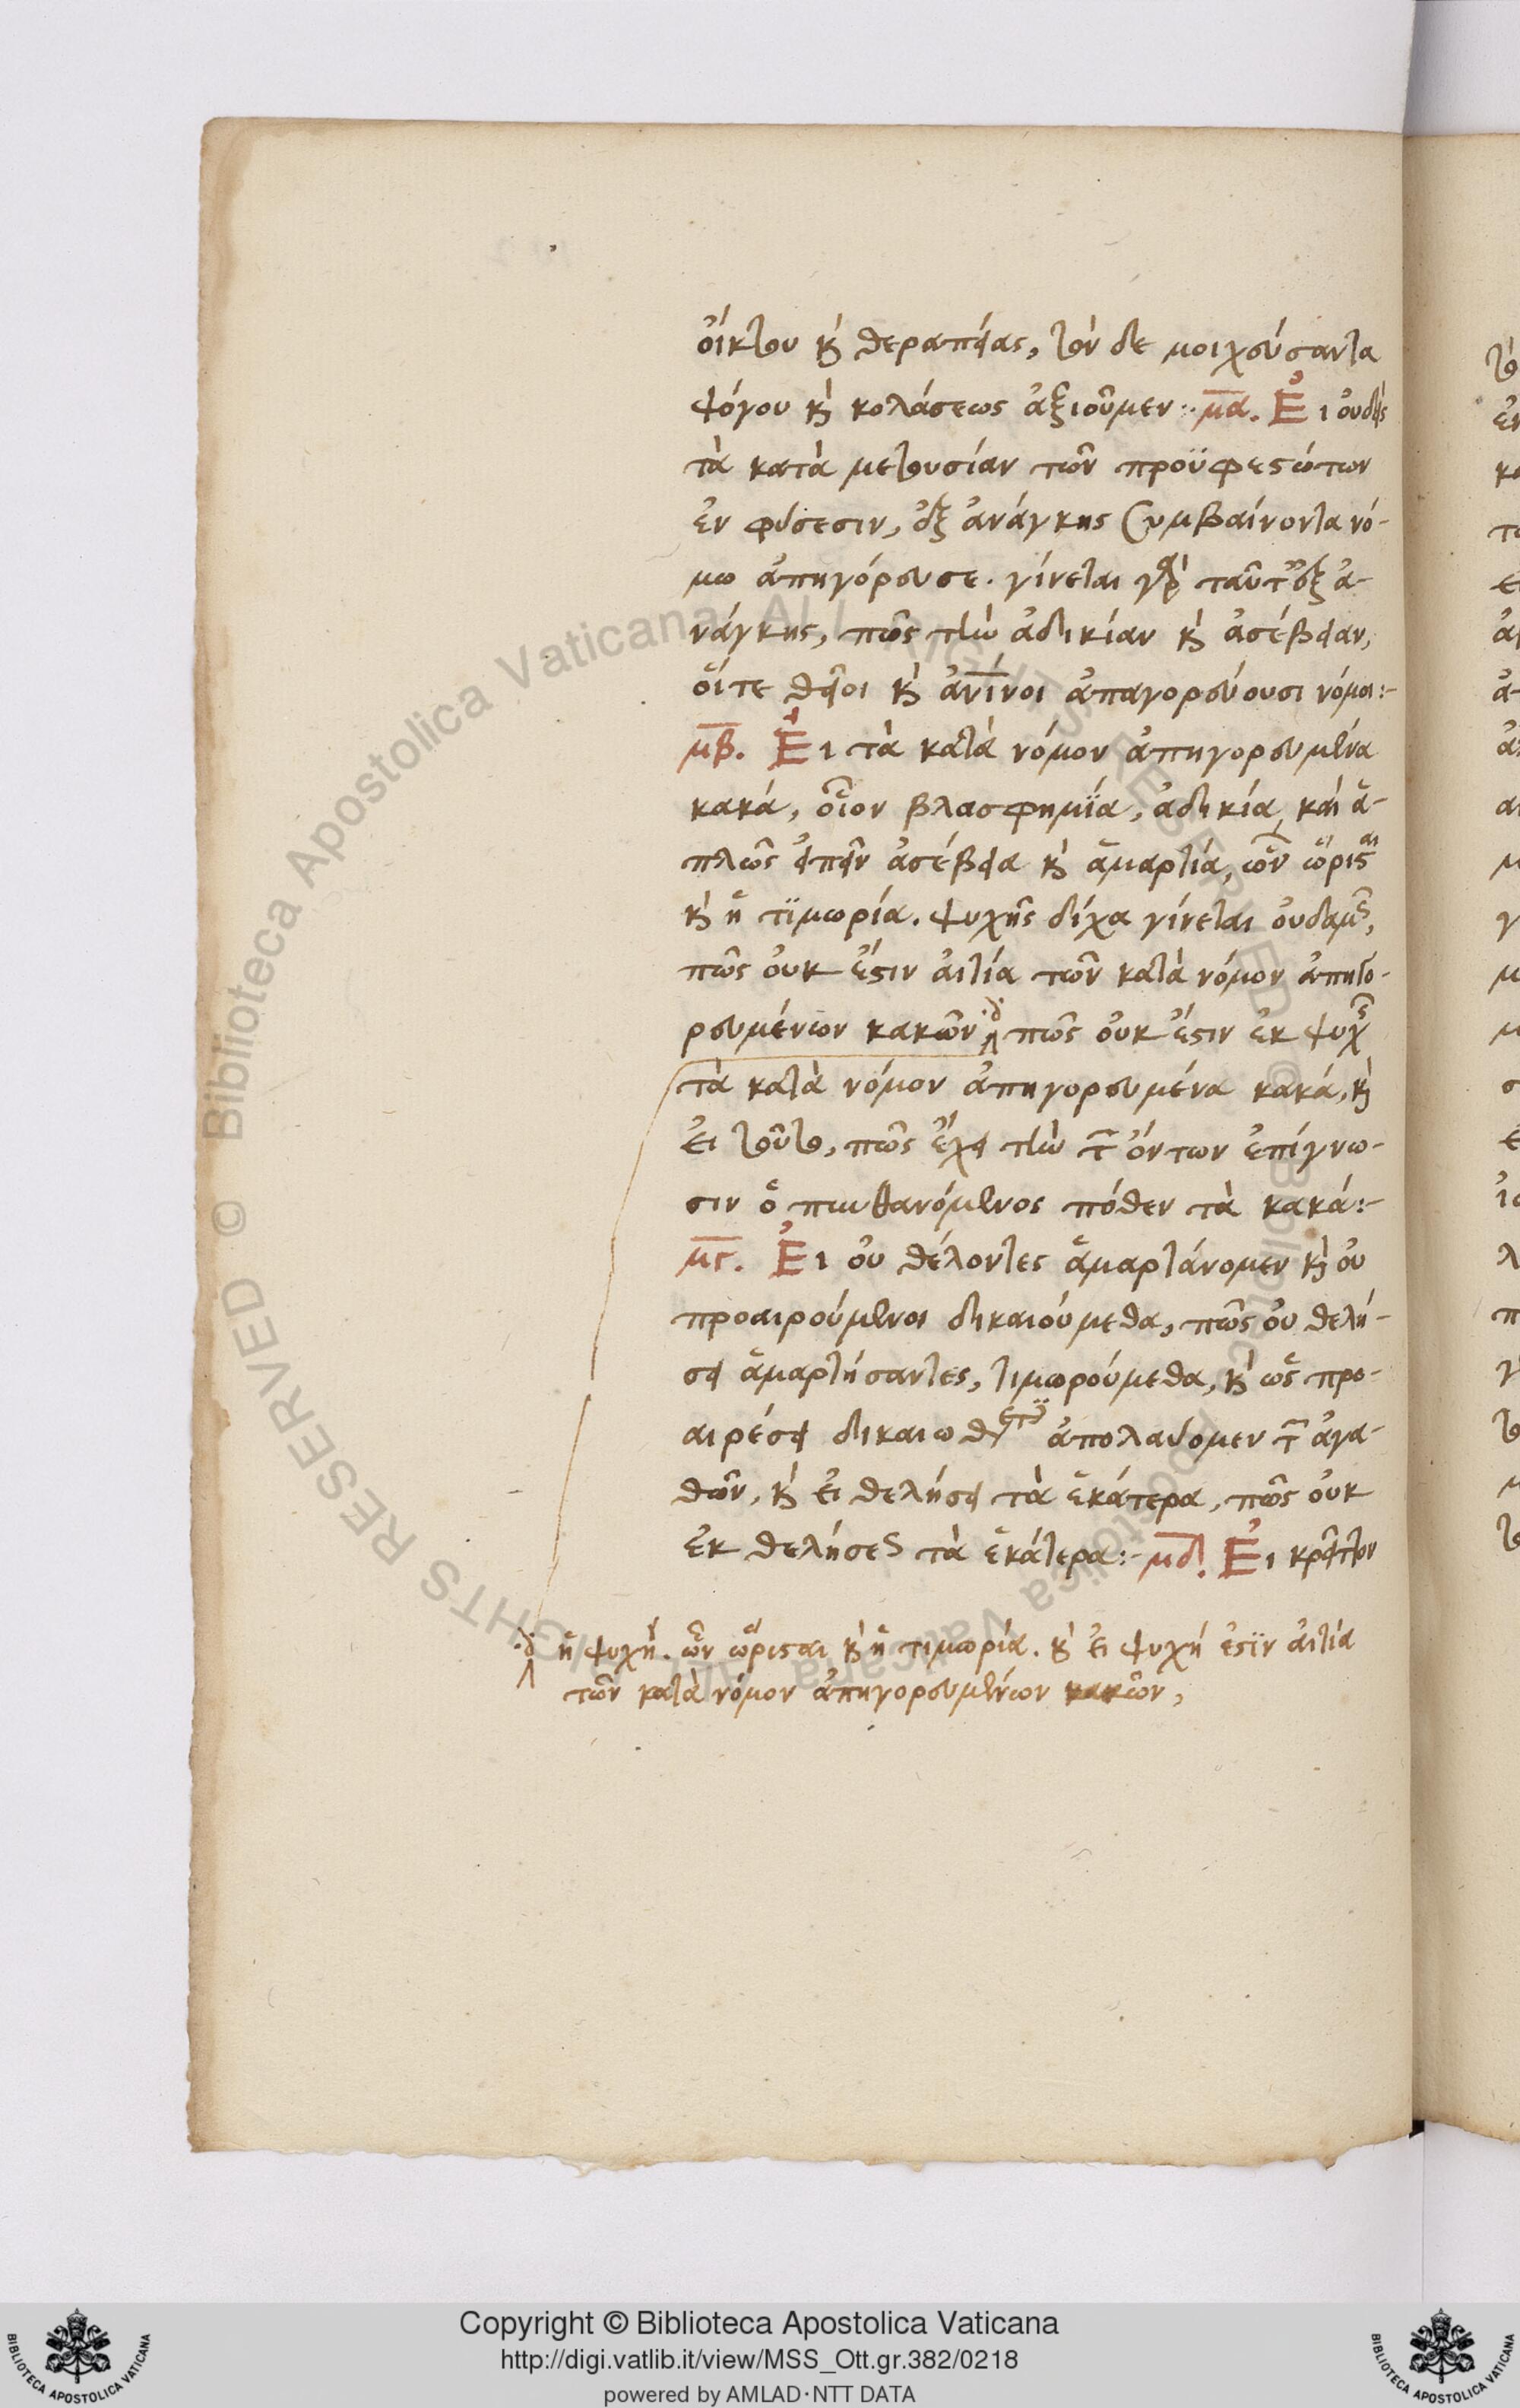 οἴκτου κὴ θεραπείας, τὸν δε μοιχεύσαντα
ψόγου κὴ κολάσεως ἀξιοῦμεν :· μα. Εἰ οὐδεὶς
τὰ κατὰ μετουσίαν τῶν προϋφεστώτων
ἐν φύσεσιν, ἐξ ἀνάγκης συμβαίνοντα νό-
μω ἀπηγόρευσε. γίνεται γὰρ ταῦτ' ἐξ ἀ-
νάγκης, πῶς τὴν ἀδικίαν κὴ ἀσέβειαν,
οἵτε θεῖοι κὴ ἀνινοι ἀπαγορεύουσι νόμοι :-
μβ. Εἰ τὰ κατὰ νόμον ἀπηγορευμένα
κακά, οἷον βλασφημΐα, ἀδικία καὶ ἁ-
πλῶς εἰπεῖν ἀσέβεια κὴ ἁμαρτία, ὧν ὥρισται
κὴ ἡ τϊμωρία. ψυχῆς δίχα γίνεται οὐδαμῶς,
πῶς οὐκ ἔστιν ἀιτία τῶν κατὰ νόμον ἀπηγο-
ρευμένων κακῶν πῶς οὐκ ἔστιν ἐκ ψυχῆς
τὰ κατὰ νόμον ἀπηγορευμένα κακά, κὴ
ἐι τοῦτο, πῶς ἔχει τὴν τῶν ὄντων ἐπίγνω-
σιν ὁ πυνθανόμενος πόθεν τὰ κακά :-
μγ. Εἰ οὐ θέλοντες ἁμαρτάνομεν κὴ οὐ
προαιρούμενοι δικαιούμεθα, πῶς οὐ θελή-
σει ἁμαρτήσαντες, τιμωρούμεθα, κὴ ὡς προ-
αιρέσει δικαιωθέντες ἀπολαύομεν τῶν ἀγα-
θῶν, κὴ ἐι θελήσει τὰ ἑκάτερα, πῶς οὐκ
ἐκ θελήσεως τὰ ἑκάτερα :- μδ. Εἰ κρεῖττον
ἡ ψυχὴ. ὧν ὥρισται κὴ ἡ τιμωρία. κὴ ἐι ψυχή ἐστϊν ἀιτία
τῶν κατὰ νόμον ἀπηγορευμένων κακῶν,
Copyright © Biblioteca Apostolica Vaticana
http://digi.vatlib.it/view/MSS_Ott.gr.382/0218
powered by AMLAD·NTT DATA